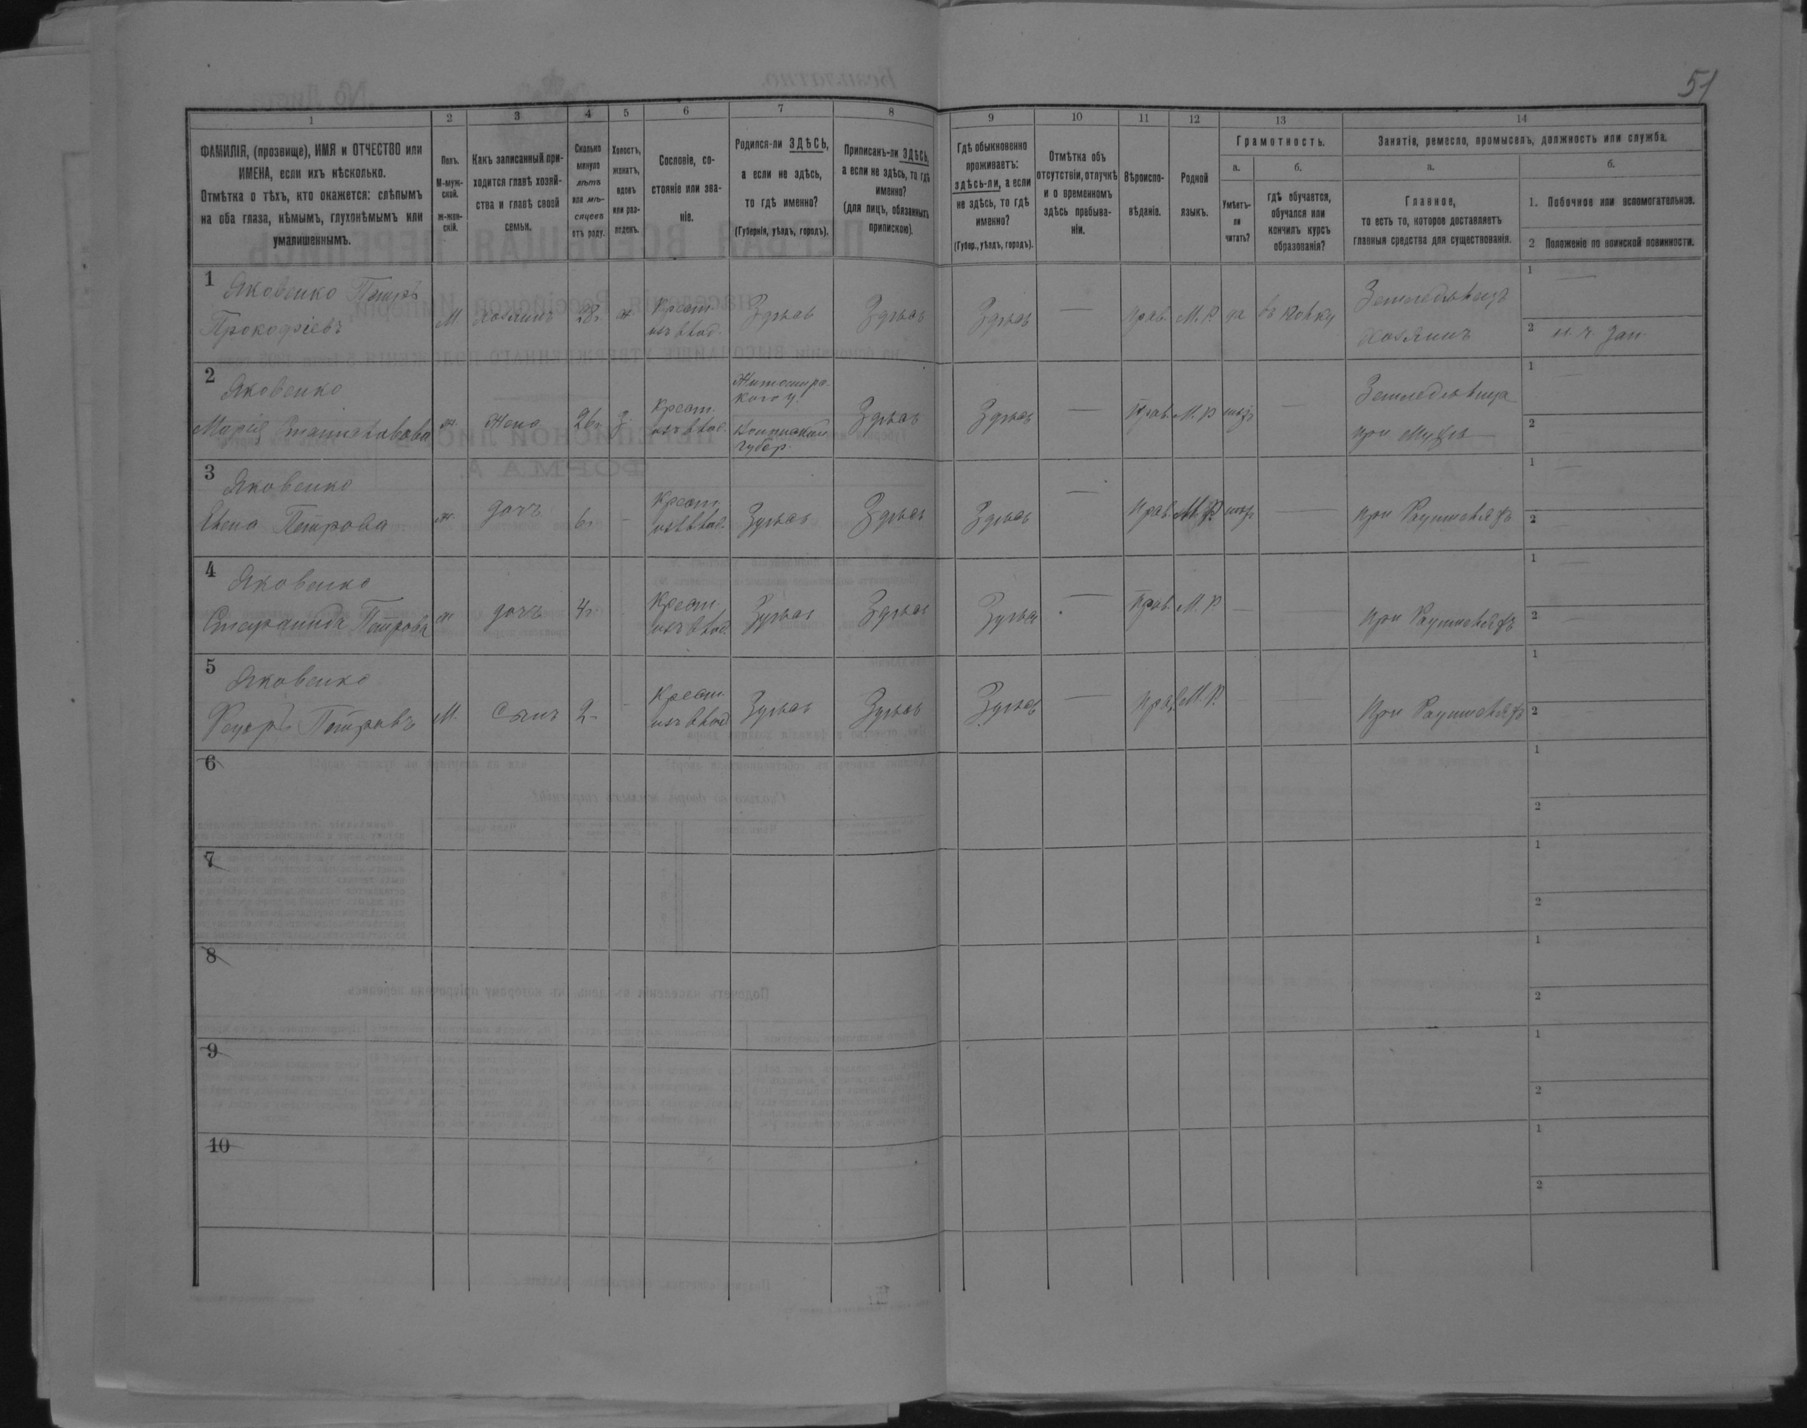 51
1 2 3 4 5 6 7 8 9 10 11 12 13 14
ФАМИЛІЯ, (прозвище), ИМЯ и ОТЧЕСТВО или
ИМЕНА, если ихъ нѣсколько.
Отмѣтка о тѣхъ, кто окажется: слѣпымъ
на оба глаза, нѣмымъ, глухонѣмымъ или
умалишеннымъ.
Полъ.
М-муж-
ской.
ж-жен-
скій.
Какъ записанный при-
ходится главѣ хозяй-
ства и главѣ своей
семьи.
Сколько
минуло
лѣтъ
или мѣ-
сяцевъ
отъ роду.
Холостъ,
женатъ,
вдовъ
или раз-
веденъ.
Сословіе, со-
стояніе или зва-
ніе.
Родился-ли ЗДѢСЬ,
а если не здѣсь,
то гдѣ именно?
(Губернія, уѣздъ, городъ).
Приписанъ-ли ЗДѢСЬ,
а если не здѣсь, то гдѣ
именно?
(для лицъ, обязанныхъ
припискою).
Гдѣ обыкновенно
проживаетъ:
здѣсь-ли, а если
не здѣсь, то гдѣ
именно?
(Губер., уѣздъ, городъ).
Отмѣтка объ
отсутствіи, отлучкѣ
и о временномъ
здѣсь пребыва-
ніи.
Вѣроиспо-
вѣданіе.
Родной
языкъ.
Грамотность.
а.
Умѣетъ-
ли
читать?
б.
гдѣ обучается,
обучался или
кончилъ курсъ
образованія?
Занятіе, ремесло, промыселъ, должность или служба.
а.
Главное,
то есть то, которое доставляетъ
главныя средства для существованія.
б.
1. Побочное или вспомогательное.
2 Положеніе по воинской повинности.
1
Яковенко Петръ
Прокофіевъ
М
хозяинъ
28
ж
Крест.
изъ влад.
Здѣсь
Здѣсь
Здѣсь
—
прав.
М. Р.
да
Земледѣлецъ
хозяинъ
1 —
2
2
Яковенко
Марія
ж
жена
26
З
Крест.
изъ влад.
Житомирс
кого у.
Волынской
Губер.
Здѣсь
Здѣсь
—
Прав.
М. Р
—
Земледѣлица
при мужѣ
1 —
2
3
Яковенко
Елена Петрова
ж
дочь
6
-
Крест.
изъ влад.
Здѣсь
Здѣсь
Здѣсь
—
Прав.
М. Р.
—
при
1 —
2 —
4
Яковенко
Степанида Петрова
ж
дочь
4
-
Крест.
изъ влад.
Здѣсь
Здѣсь
Здѣсь
—
Прав.
М. Р
—
При
1 —
2 —
5
Яковенко
Федоръ Петровъ
М.
Сынъ
2
-
Крест.
изъ влад
Здѣсь
Здѣсь
Здѣсь
—
Прав.
М. Р.
—
При
1 —
2 —
6
1
2
7
1
2
8
1
2
9
1
2
10
1
2